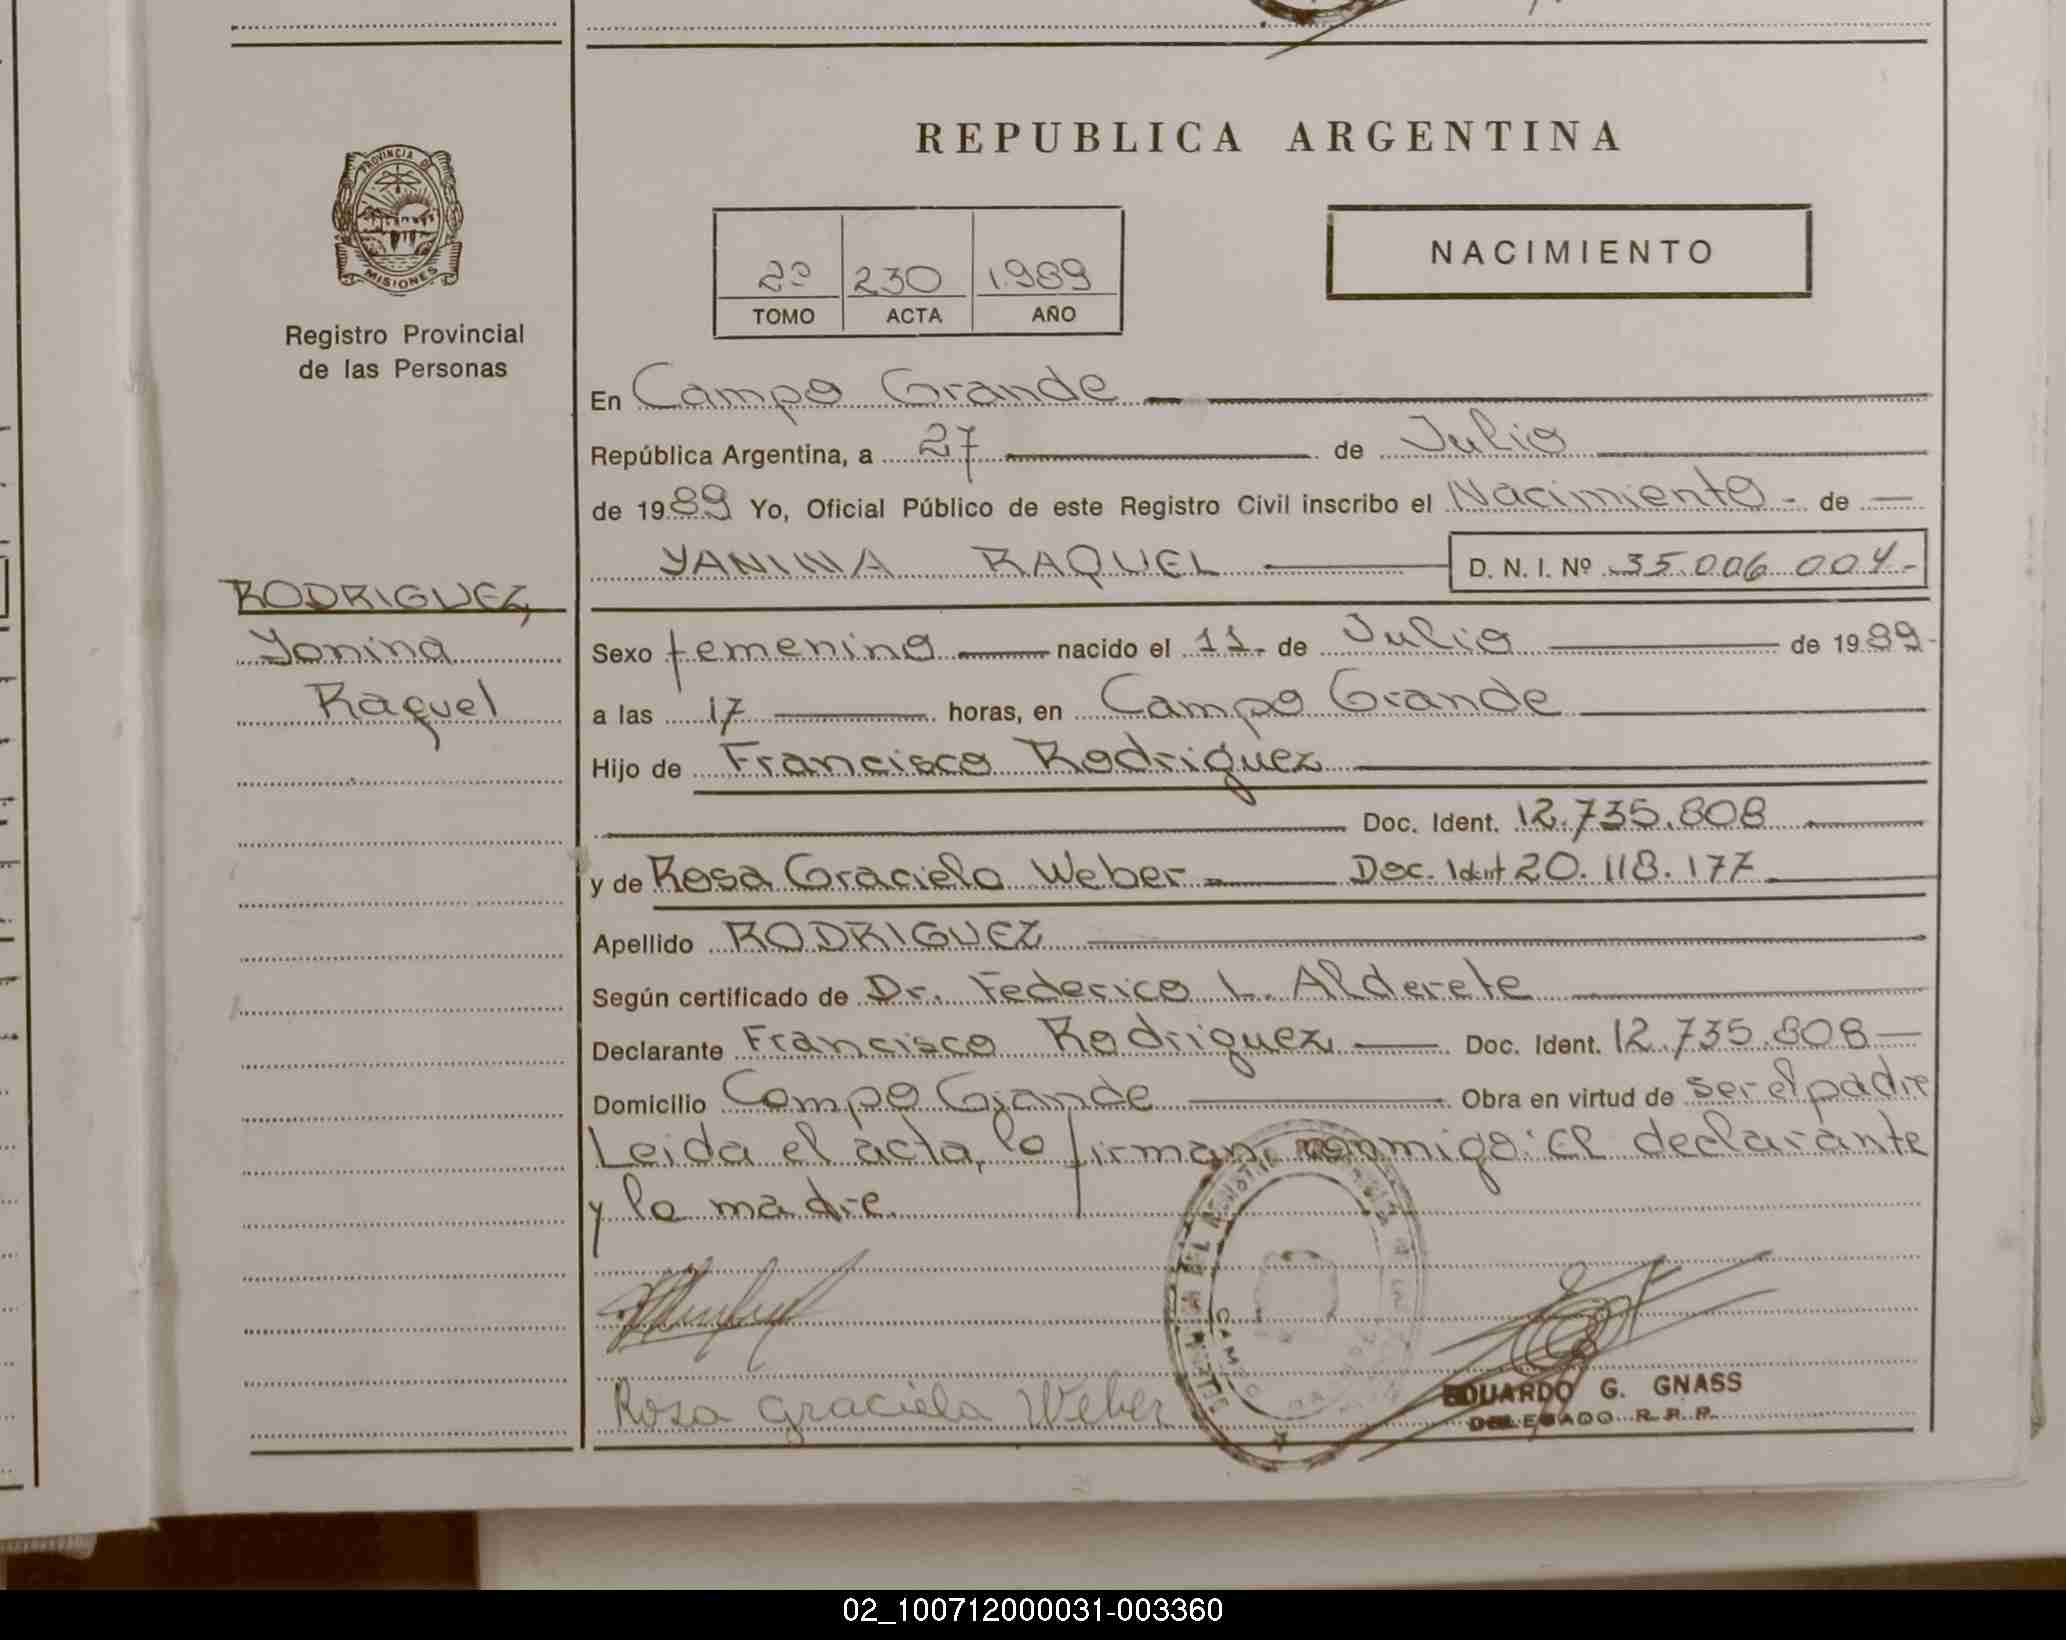 REPUBLICA ARGENTINA
PROVINCIA DE
MISIONES
Registro Provincial
de las Personas
2º 230 1.989
TOMO ACTA AÑO
NACIMIENTO
En Campo Grande
República Argentina, a 27 de Julio
de 1989 Yo, Oficial Público de este Registro Civil inscribo el Nacimiento - de
YANINA RAQUEL D. N. I. Nº 35.006.004.-
RODRIGUEZ,
Yanina
Raquel
Sexo femenino nacido el 11.- de Julio de 1989-
a las 17 horas, en Campo Grande
Hijo de Francisco Rodriguez
Doc. Ident. 12.735.808
y de Rosa Graciela Weber Doc. Ident 20.118.177
Apellido RODRIGUEZ
Según certificado de Dr. Federico L. Alderete
Declarante Francisco Rodriguez Doc. Ident. 12.735.808
Domicilio Campo Grande Obra en virtud de ser el padre
Leida el acta, lo firman conmigo: el declarante
y la madre.
CAMPO
Rosa graciela Weber
EDUARDO G. GNASS
DELEGADO R.R.P.
02_100712000031-003360